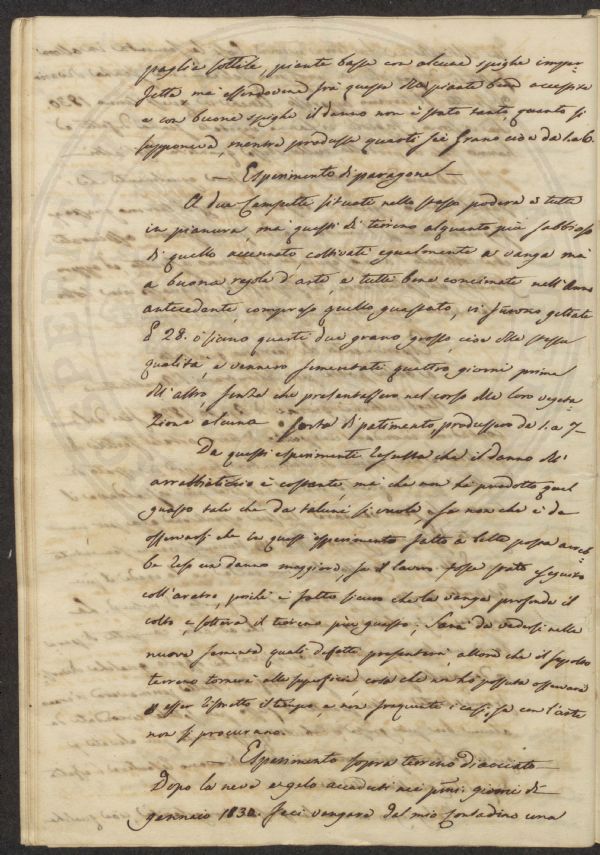 paglia sottile, piante basse con alcune spighe imper=
fette ma essendovene frà queste delle piante bene accestite
e con buone spighe il danno non è stato tanto, quanto si
supponeva, mentre produsse quarti sei Grano cioè da 1. a 6.
— Esperimento di paragone —
A due Campetti situati nello stesso podere e tutti
in pianura, ma questi di terreno alquanto più sabbioso
di quello accennato, coltivati egualmente a vanga ma
a buona regola d'arte, e tutti bene concimati nell'Anno
antecedente, compreso quello guastato, vi furono gettate
28. ò siano quarti due grano grosso, cioè della stessa
qualità, e vennero sementati quattro giorni prima
dell'altro, senza che presentassero nel corso della loro vegeta=
zione alcuna sorta di patimento, produssero da 1. a 7—
Da questi esperimenti risulta che il danno dell'
arrabbiaticcio è costante, ma che non hà prodotto quel
guasto tale che da taluni si vuole, se non che è da
osservarsi che in quest' esperimento fatto a
un danno maggiore, se il lavoro fosse stato eseguito
coll'aratro, poichè è fatto sicuro che la vanga profonda il
colto, e sotterra il terreno più guasto; Sarà da vedersi nella
nuova sementa quali difetti presenterà, allora che il sepolto
terreno tornerà alla superficie, cosa che non hò possuto osservare
esser ristretto il tempo, e non frequenti i casi, se con l'arte
non si procurano.
— Esperimento sopra terreno diacciato
Dopo la neve e gelo accaduti nei primi giorni di
gennaio 1830. feci vangare dal mio Contadino una